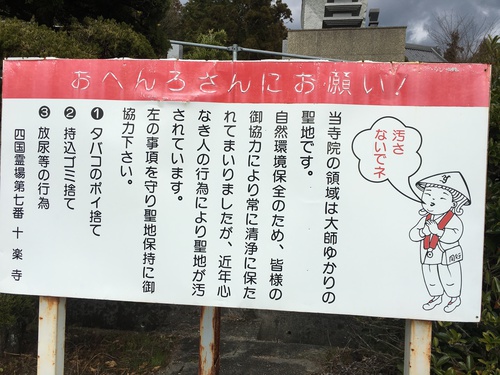 おへんろさんにお願い！
汚さ
ないでネ
当寺院の領域は大師ゆかりの
聖地です。
自然環境保全のため、皆様の
御協力により常に清浄に保た
れてまいりましたが、近年心
なき人の行為により聖地が汚
されています。
左の事項を守り聖地保持に御
協力下さい。
❶タバコのポイ捨て
❷持込ゴミ捨て
❸放尿等の行為
四国霊場第七番 十楽寺